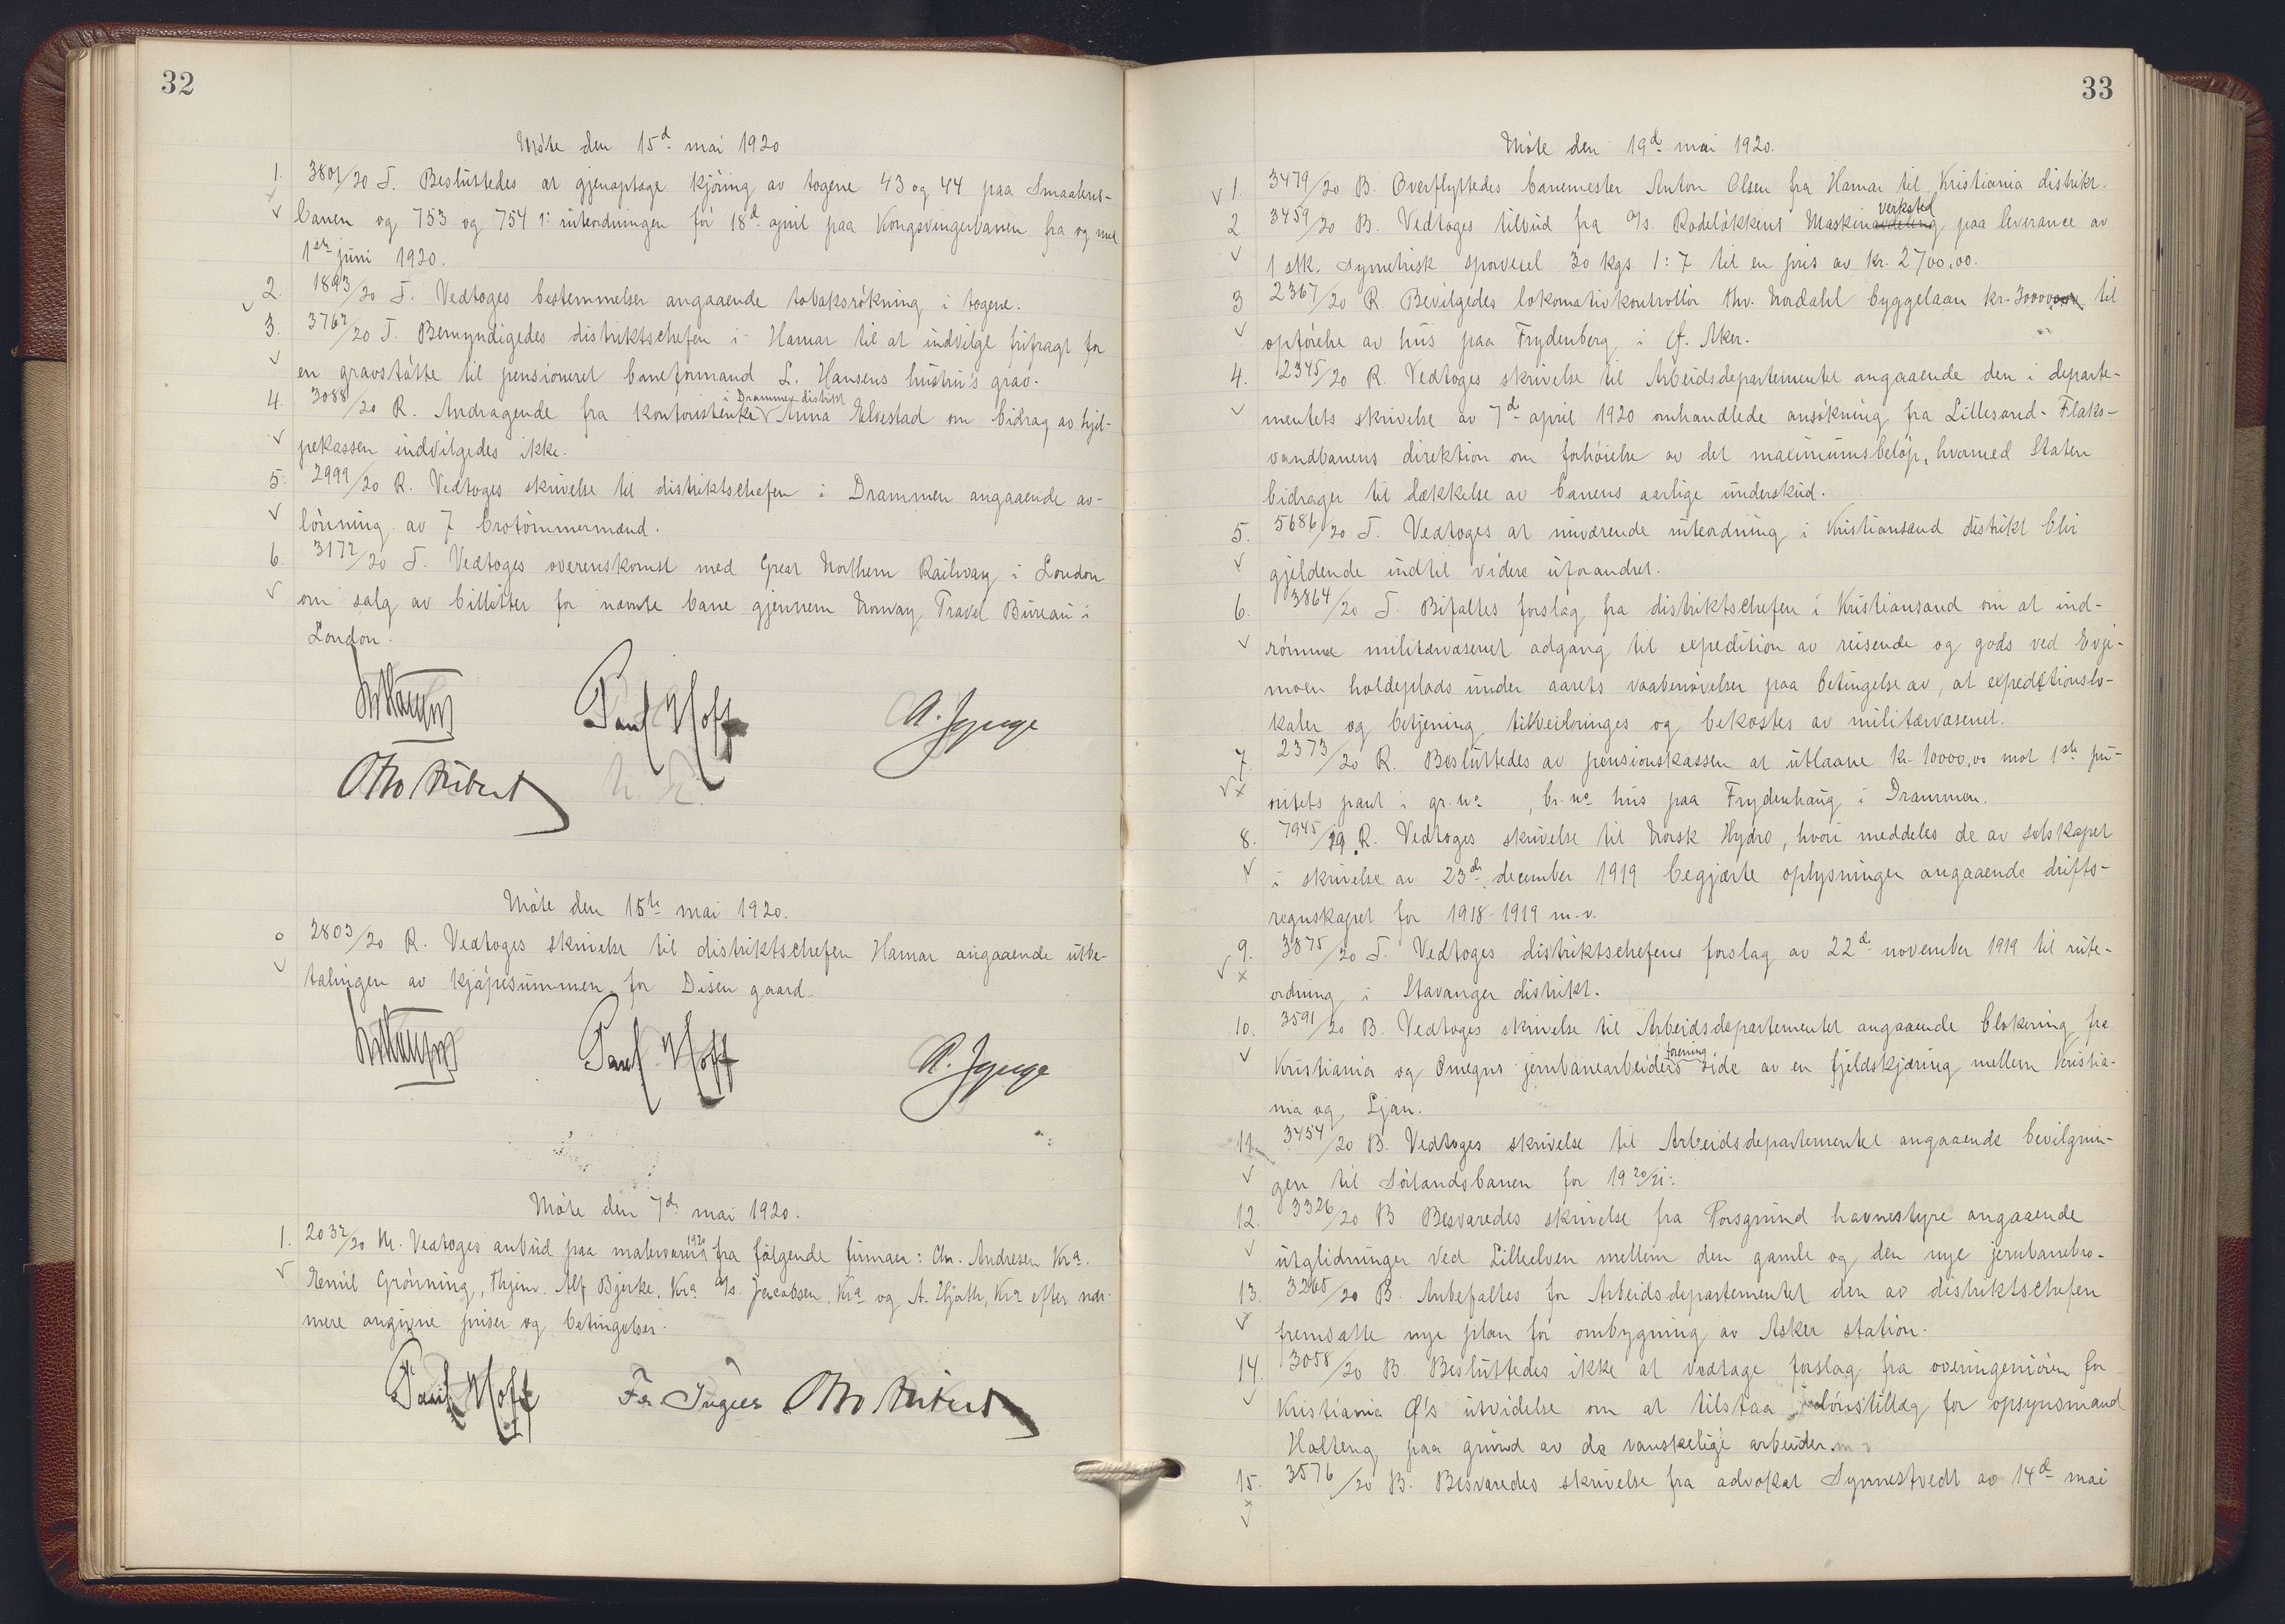 32
Møte den 15d mai 1920
1. 3801/20 T. Besluttedes at gjenoptage kjøring av togene 43 og 44 paa Smaalens-
banen og 753 og 754 i ruteordningen før 18d april paa Kongsvingerbanen fra og med
1ste juni 1920.
2. 1893/20 T. Vedtoges bestemmelser angaaende tobaksrøkning i togene.
3. 3762/20 T. Bemyndigedes distriktschefen i Hamar til at indvilge frifragt for
en gravstøtte til pensioneret baneformand L. Hansens hustru's grav.
i Drammen distrikt
4. 3088/20 R. Andragende fra kontoristinke Anna Elvestad om bidrag av hjel-
pekassen indvilgedes ikke.
5. 2999/20 R. Vedtoges skrivelse til distriktschefen i Drammen angaaende av-
lønning av 7 brotømmermænd.
6. 3172/20 T. Vedtoges overenskomst med Great Northern Railway i London
om salg av billetter for nævnte bane gjennem Norway Travel Bureau i
London.
Paul Hoff
Otto Aubert
Møte den 15de mai 1920.
2803/20 R. Vedtoges skrivelse til distriktschefen Hamar angaaende utbe-
talingen av kjøpesummen for Disen gaard.
Paul Hoff
Møte den 7de mai 1920.
1. 2032/20 M. Vedtoges anbud paa malervarer 1920 fra følgende firmaer: Chr. Andresen Kra.
Remil Grønning, Thjem. Alf Bjerke, Kra A/s. Jacobsen, Kra og A. Hjorth, Kra efter nær-
mere angivne priser og betingelser.
Paul Hoff Otto Aubert
33
Møte den 19d mai 1920.
1. 3479/20 B. Overflyttedes banemester Anton Olsen fra Hamar til Kristiania distrikt.
verksted
2 3459/20 B. Vedtoges tilbud fra A/s. Rodeløkkens Maskinavdeling paa leverance av
1 stk. symetrisk sporvexel 30 kgs 1:7 til en pris av kr. 2700,00.
3 2367/20 R. Bevilgedes lokomotivkontrollør Thv. Nordahl byggelaan kr. 30000 til
opførelse av hus paa Frydenberg i Ø. Aker.
4. 2345/20 R. Vedtoges skrivelse til Arbeidsdepartementet angaaende den i departe-
mentets skrivelse av 7de april 1920 omhandlede ansøkning fra Lillesand-Flaks-
vandbanens direktion om forhøielse av det maximumsbeløp, hvormed Staten
bidrager til dækkelse av banens aarlige underskud.
5. 5686/20 T. Vedtoges at nuværende ruteordning i Kristiansand distrikt blir
gjeldende indtil videre uforandret.
6. 3864/20 T. Bifaltes forslag fra distriktschefen i Kristiansand om at ind-
rømme militærvæsenet adgang til expedition av reisende og gods ved Evje-
moen holdeplads under aarets vaabenøvelser paa betingelse av, at expeditionslo-
kaler og betjening tilveiebringes og bekostes av militærvæsenet.
7. 2373/20 R. Besluttedes av pensionskassen at utlaane kr. 10000,00 mot 1ste pri-
oritets pant i gr. no , br. no hus paa Frydenhaug i Drammen.
8. 7945/19 R. Vedtoges skrivelse til Norsk Hydro, hvori meddeles de av selskapet
i skrivelse av 23de december 1919 begjærte oplysninger angaaende drifts-
regnskapet for 1918-1919 m.v.
9. 3875/20 T. Vedtoges distriktschefens forslag av 22de november 1919 til rute-
ordning i Stavanger distrikt.
10. 3591/20 B. Vedtoges skrivelse til Arbeidsdepartementet angaaende blokering fra
forening
Kristiania og Omegns jernbanearbeiders side av en fjeldskjæring mellem Kristia-
nia og Ljan.
11. 3454/20 B. Vedtoges skrivelse til Arbeidsdepartementet angaaende bevilgnin-
gen til Sørlandsbanen for 1920/21.
12. 3326/20 B Besvaredes skrivelse fra Porsgrund havnestyre angaaende
utglidninger ved Lilleelven mellem den gamle og den nye jernbanebro.
13. 3265/20 B. Anbefaltes for Arbeidsdepartementet den av distriktschefen
fremsatte nye plan for ombygning av Asker station.
14. 3058/20 B. Besluttedes ikke at vedtage forslag fra overingeniøren for
Kristiania Ø's utvidelse om at tilstaa lønstillæg for opsynsmand
Holteng paa grund av de vanskelige arbeider.
15. 3576/20 B. Besvaredes skrivelse fra advokat Synnestvedt av 14d mai